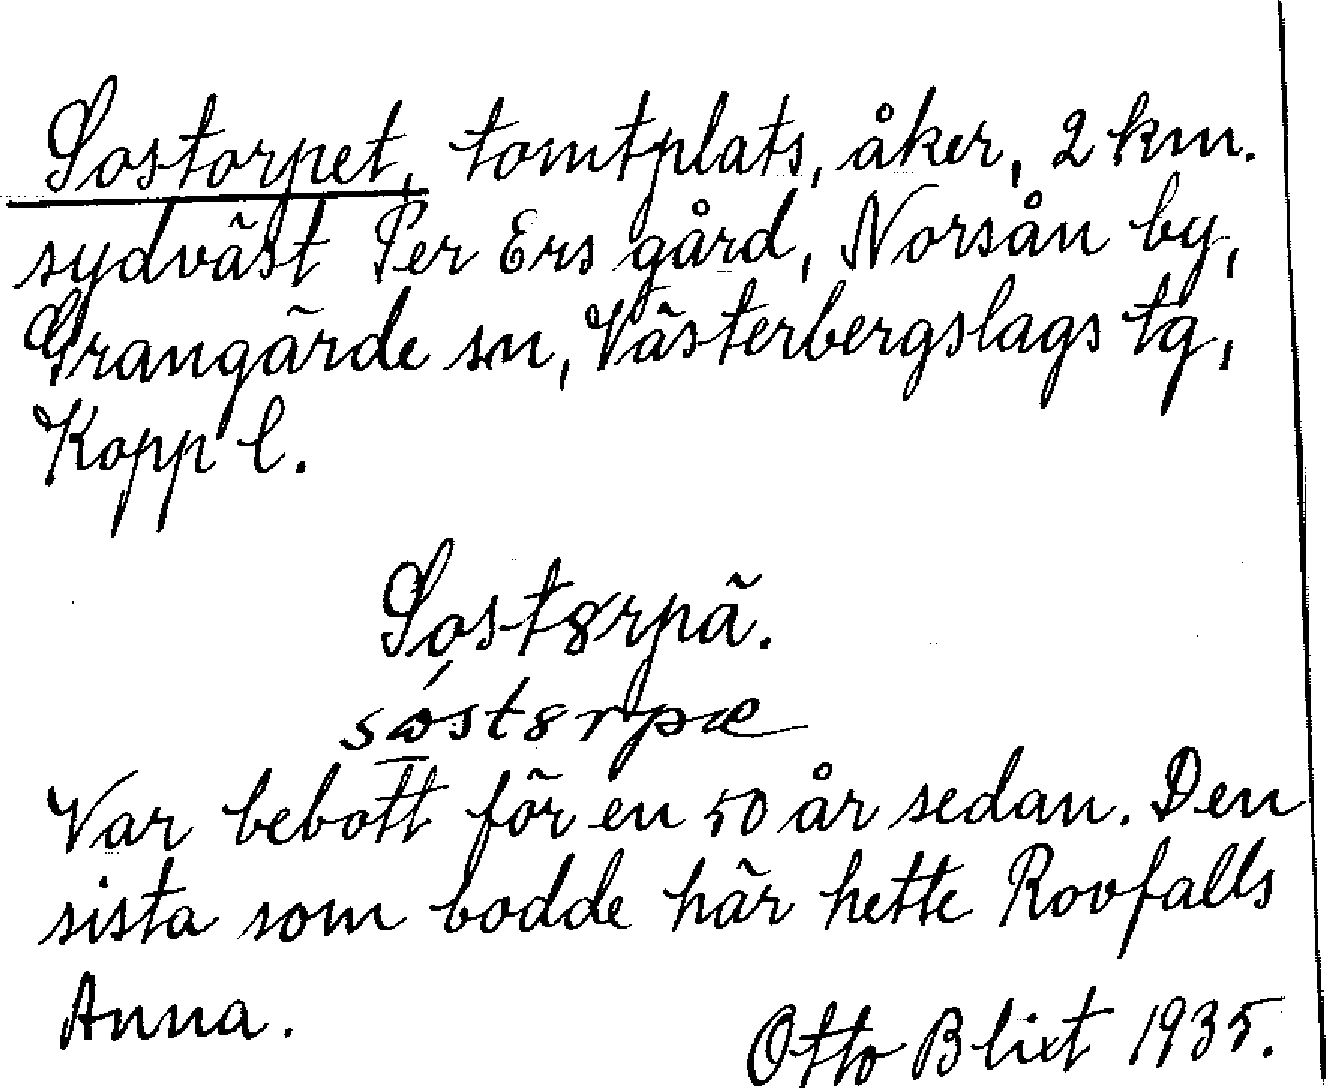 Sostorpet, tomtplats, åker, 2 km.
sydväst Per Ers gård, Norsån by,
Grangärde sn, Västerbergslags tg,
Kopp l.
Sost8rpä.
sóst8rpæ
Var bebott för en 50 år sedan. Den
sista som bodde här hette Rovfalls
Anna.
Otto Blixt 1935.